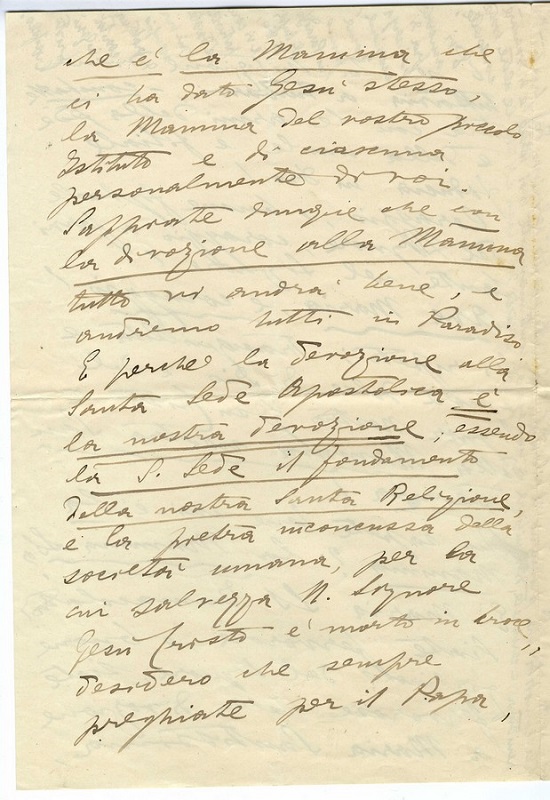 che é la Mamma che
ci ha dato Gesù stesso,
la Mamma del vostro piccolo
Istituto e di ciascuna
personalmente di voi.
Sappiate dunque che con
la divozione alla Mamma
tutto vi andrà bene, e
andremo tutti in Paradiso
E perche la devozione alla
Santa Sede Apostolica é
la nostra devozione, essendo
la S. Sede il fondamento
della nostra Santa Religione,
e la pietra inconcussa della
società umana, per la
cui salvezza N. Signore
Gesù Cristo é morto in Croce,
desidero che sempre
preghiate per il Papa,